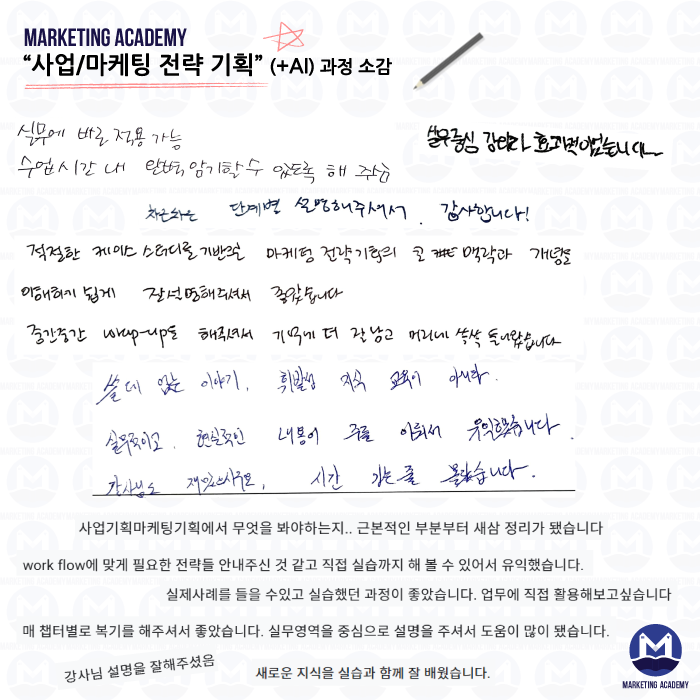 MARKETING ACADEMY
“사업/마케팅 전략 기획” (+AI) 과정 소감
실무에 바로 적용 가능
실무중심 강의라 효과적이었습니다
수업시간 내 완벽히 암기할 수 있도록 해 주심
차근차근 단계별 설명해주셔서. 감사합니다!
적절한 케이스 스터디를 기반으로 마케팅 전략기획의 큰 맥락과 개념을
이해하기 쉽게 잘 설명해주셔서 좋았습니다
중간중간 wrap-up도 해주셔서 기억에 더 잘 남고 머리에 쏙쏙 들어왔습니다
쓸데 없는 이야기, 휘발성 지식 교육이 아니라.
실무적이고. 현실적인 내용이 주를 이뤄서 유익했습니다.
강사님도 재밌으시구요, 시간 가는 줄 몰랐습니다.
사업기획마케팅기획에서 무엇을 봐야하는지.. 근본적인 부분부터 새삼 정리가 됐습니다
work flow에 맞게 필요한 전략들 안내주신 것 같고 직접 실습까지 해 볼 수 있어서 유익했습니다.
실제사례를 들을 수있고 실습했던 과정이 좋았습니다. 업무에 직접 활용해보고싶습니다
매 챕터별로 복기를 해주셔서 좋았습니다. 실무영역을 중심으로 설명을 주셔서 도움이 많이 됐습니다.
강사님 설명을 잘해주셨음
새로운 지식을 실습과 함께 잘 배웠습니다.
MARKETING ACADEMY